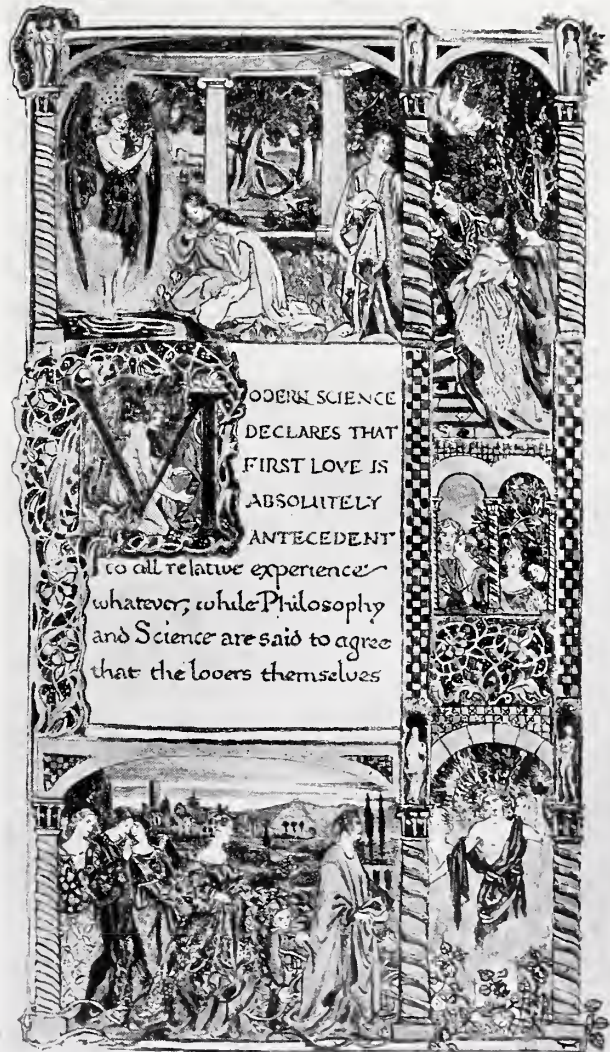 MODERN SCIENCE
DECLARES THAT
FIRST LOVE IS
ABSOLUTELY
ANTECEDENT
to all relative experience
whatever; while Philosophy
and Science are said to agree
that the lovers themselves